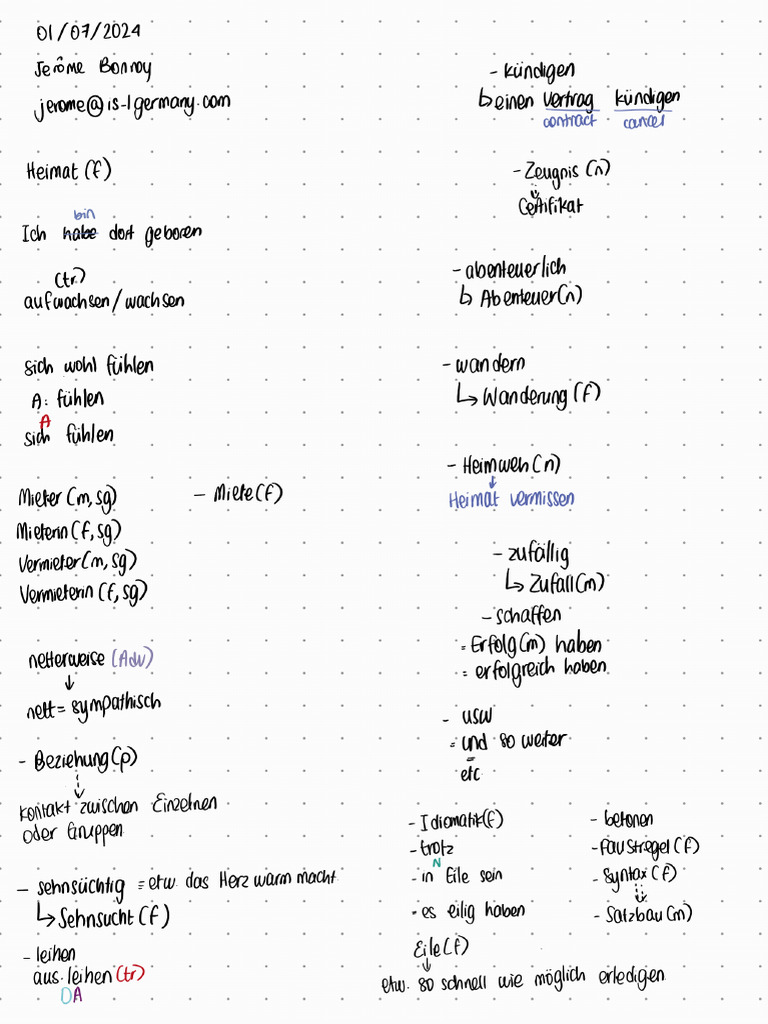 01/07/2024
Jerôme Bonnoy
jerome@is-lgermany.com
Heimat (f)
bin
Ich habe dort geboren
(tr.)
aufwachsen/wachsen
sich wohl fühlen
A: fühlen
A
sich fühlen
Mieter (m, sg) - Miete (f)
Mieterin (f, sg)
Vermieter (m, sg)
Vermieterin (f, sg)
netterweise (Adv)
↓
nett = sympathisch
- Beziehung (p)
Kontakt zwischen Einzelnen
oder Gruppen
- sehnsüchtig = etw. das Herz warm macht
↳ Sehnsucht (f)
- leihen
aus.leihen (tr)
DA
- kündigen
↳ einen Vertrag kündigen
contract cancel
- Zeugnis (n)
Certifikat
- abenteuerlich
↳ Abenteuer (n)
- wandern
↳ Wanderung (f)
- Heimweh (n)
↓
Heimat vermissen
- zufällig
↳ Zufall (m)
- schaffen
= Erfolg (m) haben
= erfolgreich haben
- usw
= und so weiter
= etc
- Idiomatik (f)
- trotz
N
- in Eile sein
- es eilig haben
Eile (f)
↓
etw. so schnell wie möglich erledigen
- betonen
- Faustregel (f)
- Syntax (f)
- Satzbau (m)